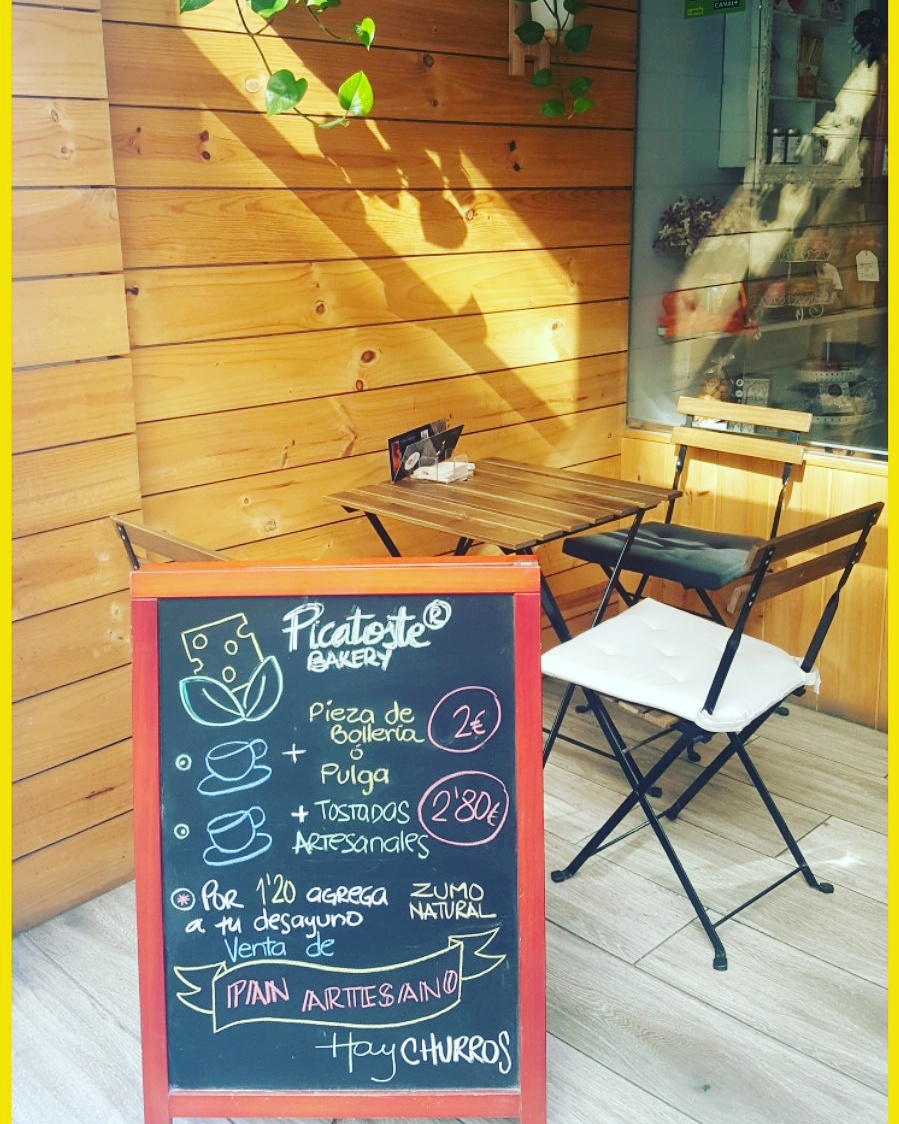 CANAL+
Picatoste®
BAKERY
Pieza de
Bollería 2€
ó
+
Pulga
+ TOSTADAS 2'80€
ARTESANALES
* POR 1'20 agrega ZUMO
a tu desayuno NATURAL
Venta de
PAN ARTESANO
Hay CHURROS